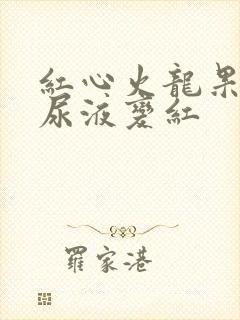 紅心火龍果
尿液變紅
羅家港